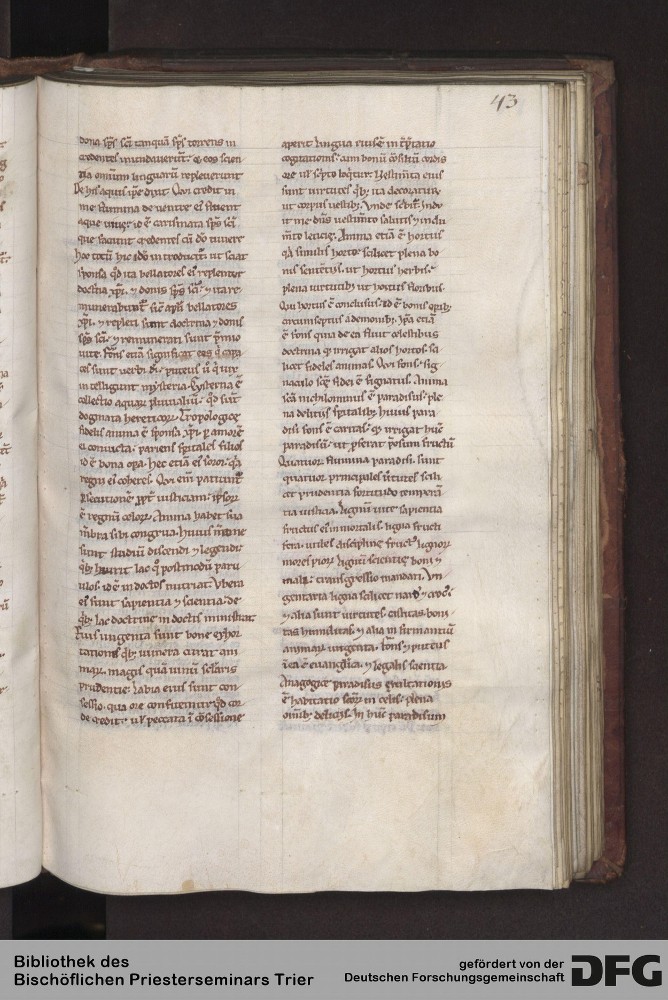 43
dona sp̄s sc̄i tanquā sp̄s torrens in
credentes inundauerunt. & eos scien
tia omniū linguarū repleuerunt
De his aquis ip̄e dixit. Qui credit in
me flumina de uentre ei fluent
aque uiue. id ē carismata sp̄s sc̄i
que faciunt credentes cū dō uiuere
Hoc totū hic idō introducit̄. ut sciat
sponsa qd̄ ita bellatores ei replentur
doctrina xp̄i. ⁊ donis sp̄s sc̄i. ⁊ ita re
munerabunt᷑ sic apl̄i bellatores
xp̄i. ⁊ repleti sunt doctrina ⁊ donis
sp̄s sc̄i. ⁊ remunerati sunt p̄mio
uite. Fons etiā significat eos
sunt uerbi dī. puteus
intelligunt mysteria. Cysterna ē
collectio aquar̄ pluuialiū. qd̄ sunt
dogmata hereticor̄. Tropologice
fidelis anima ē sponsa xp̄i. p̄ amorē
ei coniuncta. pariens sp̄itales filios
id ē bona opa. hec etiā ei soror. q̄a
regni ei coheres. Qui eni᷑ patiunt᷑
p̄secutionē ꝓpt̄ iusticiam. ipsor̄
ē regnū celor̄. Anima habet sua
mēbra sibi congrua. Huius
sunt studiū discendi ⁊ legendi.
qb; haurit lac q̄ postmodū paru
ulos. id ē indoctos nutriat. Vbera
ei sunt sapientia ⁊ scientia. de
qb; lac doctrine indoctis ministrat.
Eius ungenta sunt bone exhor
tationes qb; uulnera curat ani
mar̄. magis quā uinū sc̄laris
prudentie. Labia eius sunt con
fessio. qua ore confitemur qd̄ cor
de credit. uł peccata ī cōfessione
aperit. Lingua eius ē
cogitationis. cum bonū cordis
ore uł sc̄pto loq̄tur. Vestimta eius
sunt uirtutes qb; ita decoratur
ut corpus uestib;. Vnde sc̄bit᷑. Indu
it me dn̄s uestimēto salutis ⁊ indu
mēto leticie. Anima etiā ē hortus
q̄a similis horto. scilicet plena bo
nis sententiis. ut hortus herbis.
plena uirtutib; ut hortus floribus.
Qui hortus ē conclusus. id ē bonis opib;
circumseptus a demonib;. Ip̄a etiā
ē fons quia de ea fluit celestibus
doctrina q̄ irrigat alios hortos. sci
licet fideles animas. Qui fons sig
naculo sc̄e fidei ē signatus. Anima
sc̄a nichilominus ē paradisus. ple
na delitiis sp̄italib;. huius para
disi fons ē caritas. q̄ irrigat hūc
paradisū. ut p̄ferat fructū
Quatuor flumina paradisi. sunt
quatuor principales uirtutes. scili
cet prudentia fortitudo temperā
tia iusticia. Lignū uite sapientia
fructus ei inmortalis. ligna fructi
fera. utiles discipline. fructꝰ lignor̄
mores pior̄. lignū scientie boni ⁊
mali. transgressio mandati. Vn
gentaria ligna scilicet nard ⁊ croc
⁊ alia sunt uirtutes. castitas. boni
tas humilitas. ⁊ alia in firmantiū
animar̄ ungenta. Fons ⁊ puteus
ī ea ē euanglica. ⁊ legalis scientia.
Anagogice paradisus exultationis
ē habitatio sc̄or̄ in celis. plena
omib; deliciis. In hūc paradisum
Bibliothek des
Bischöflichen Priesterseminars Trier
gefördert von der
Deutschen Forschungsgemeinschaft
DFG